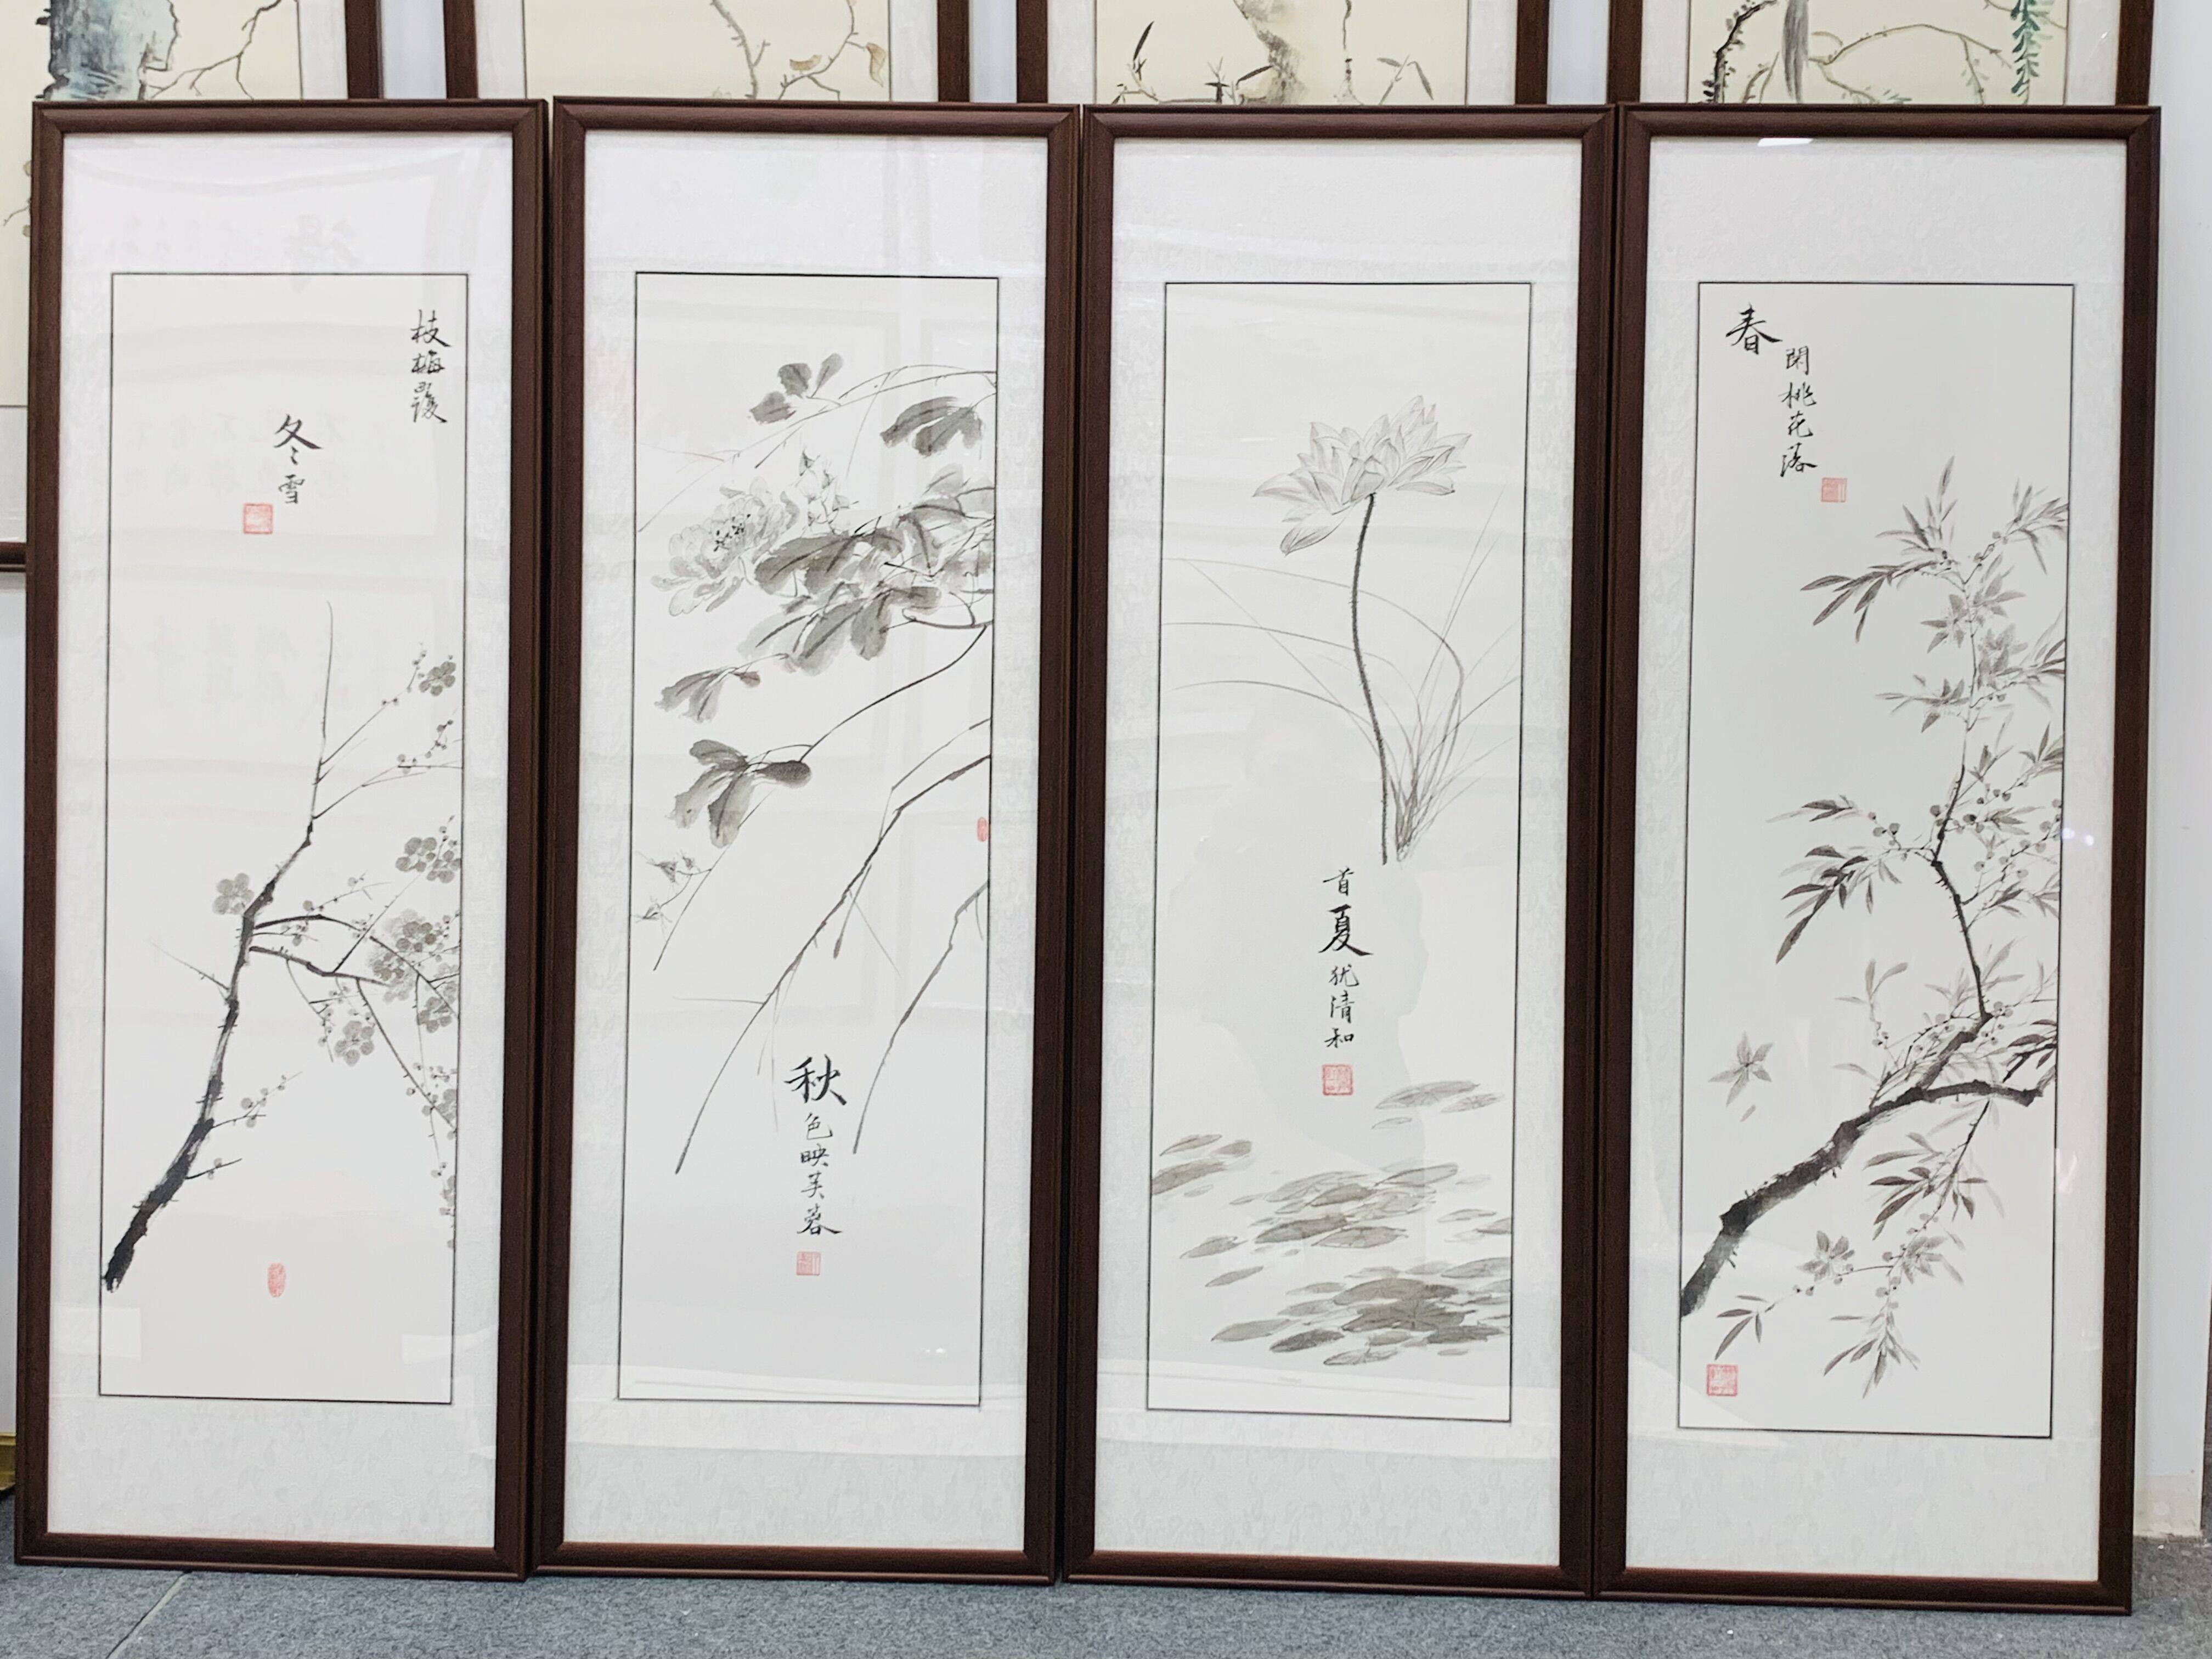 春
閑桃花落
首夏犹清和
秋色映芙蓉
枝梅覆
冬雪